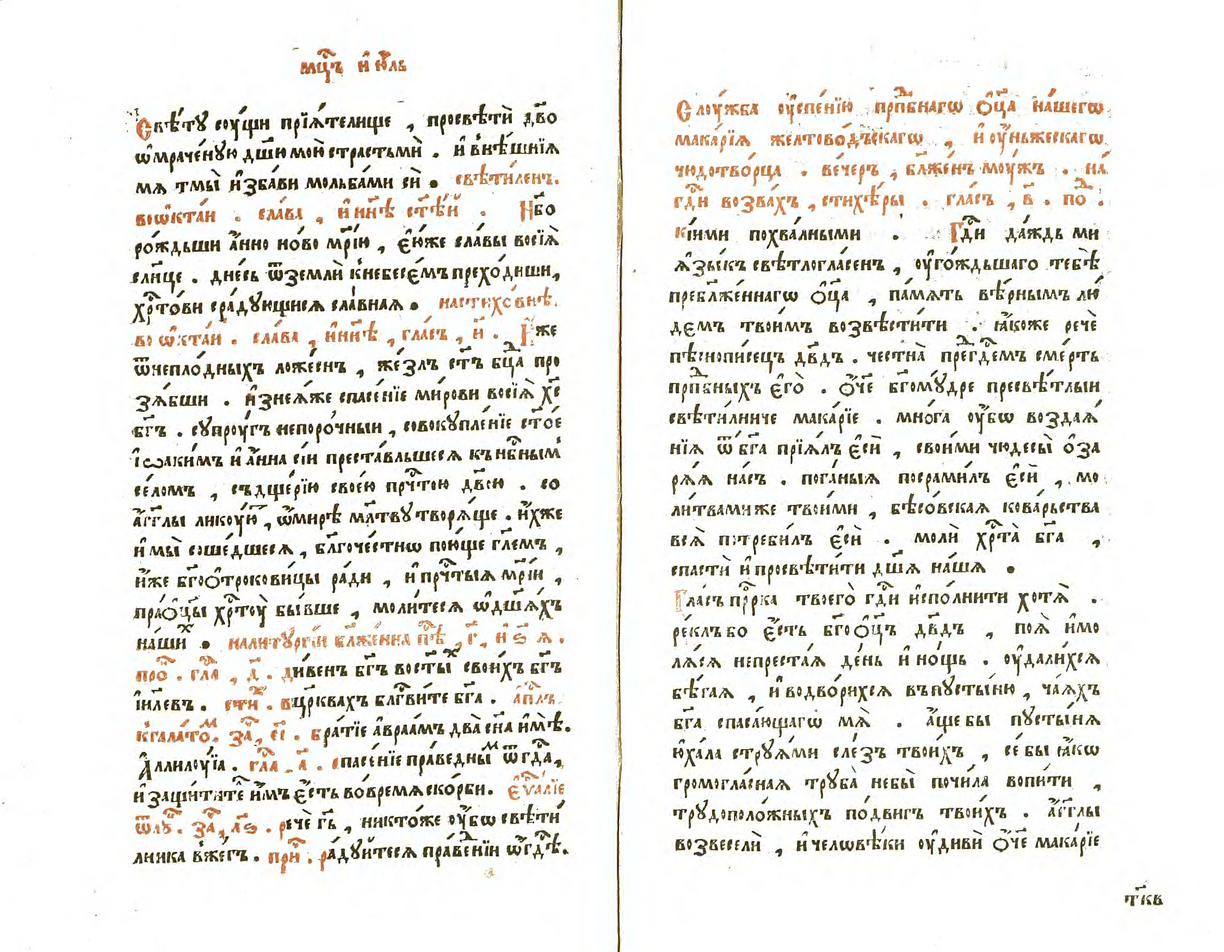 мцⷭ҇ъ и҆ю́ль
Свѣ́тꙋ сꙋ́щи прїѧ́телище , просвѣтѝ дв҃о
ѡ҆мраче́нꙋю дш҃и моѝ страстьмѝ . и҆ внѣ́шнїѧ
мѧ тмы̀ и҆зба́ви мольба́ми сѝ . свѣти́ленъ.
во ѡ҆кта́и . сла́ва , и҆ ни́нѣ ст҃ѣ́й . Ꙗ҆́бо
рождьши а҆́нно но́во мр҃і́ю , є҆ѧ́же сла́вы восїѧ̀
сл҃нце . дне́сь ѿ землѝ к нб҃се́мъ прехо́диши,
хрⷭ҇то́ви сра́дꙋющисѧ сла́внаѧ . на стихо́внѣ.
во ѡ҆кта́и . сла́ва , и҆ни́нѣ , гла́съ , и҃ . И҆́же
ѿ непло́дныхъ ложе́снъ , же́злъ ст҃ъ бц҃а про
зѧ́бши . и҆з неѧ́же спасе́нїе ми́рови восїѧ̀ хс҃
бг҃ъ . сꙋпрꙋ́гъ непоро́чныи , совокꙋпле́нїе ст҃о́е
і҆ѡаки́мъ и҆ а҆́нна сі́и преста́вльшесѧ къ нбⷭ҇нымъ
се́ломъ , съ дще́рїю свое́ю прⷱ҇тою дв҃ою . со
а҆́гг҃лы ликꙋ́ютъ , ѡ҆ ми́рѣ мл҃твꙋ творѧ́ще . и҆́хже
и҆ мы̀ сше́дшесѧ , бл҃гоче́стнѡ пою́ще гл҃емъ ,
и҆́же бг҃оѻтрокови́цы ра́ди , и҆ прⷱ҇тыѧ мр҃і́и ,
пра́ѻц҃ы хрⷭ҇тꙋ̀ бы́вше , моли́тесѧ ѡ҆ дш҃а́хъ
на́шиⷯ . на литꙋргі́и бл҃же́нна пѣⷭ҇ , г҃ , и҆ ѕ҃ ѧ .
проⷦ҇ . гла́ , д҃ . ди́венъ бг҃ъ во ст҃ы́ⷯ свои́хъ бг҃ъ
і҆и҃левъ . сти́ⷯ . в цр҃квахъ бл҃гви́те бг҃а . а҆пⷭ҇лъ.
к гала́тоⷨ . за́ⷱ , с҃і . бра́тїе а҆враа́мъ два̀ сн҃а и҆мѣ̀.
А҆ллилꙋ́їа . гла́ . а҃ . спасе́нїе пра́веднымⷨ ѿ гдⷭ҇а,
и҆ защи́титель и҆̀мъ є҆́сть во вре́мѧ ско́рби. є҆ѵⷢ҇а́лїе
ѿ лꙋ́ . за́ⷱ, л҃ѕ . речѐ гдⷭ҇ь , никто́же ᲂу҆́бѡ свѣти́
лника вже́гъ . при́ⷱ . ра́дꙋйтесѧ пра́веднїи ѡ҆ гдⷭ҇ѣ.
Слꙋ́жба ᲂу҆спе́нїю прпⷣбнагѡ ѻ҆ц҃а на́шегѡ
мака́рїѧ желтово́дъскагѡ , и҆ ᲂу҆́ньжескагѡ
чюдотво́рца . ве́черъ , бл҃же́нъ мꙋ́жъ . на́
гдⷭ҇и возва́хъ , стихѣ́ры . гла́съ , в҃ . поⷣ :
кі́ими похва́лными . Гдⷭ҇и да́ждь ми
ѧ҆зы́къ свѣтлогла́сенъ , ᲂу҆го́ждьшаго тебѣ̀
пребл҃же́ннагѡ ѻ҆ц҃а , па́мѧть вѣ́рнымъ лю́
демъ твои́мъ возвѣсти́ти . ꙗ҆́коже речѐ
пѣснопи́сецъ дв҃дъ . честна̀ пре́гдⷭ҇емъ сме́рть
прпⷣбныхъ є҆го̀ . ѻ҆́ч҃е бг҃омꙋ́дре пресвѣ́тлыи
свѣти́лниче мака́рїе . мно́га ᲂу҆́бѡ воздаѧ́
нїѧ ѿ бг҃а прїѧ́лъ є҆сѝ , свои́ми чюдесы̀ ѻ҆за
рѧ́ѧ на́съ . пога́ныѧ посрами́лъ є҆сѝ , мо
ли́твами же твои́ми , бѣсо́вскаѧ кова́рьства
всѧ̀ потреби́лъ є҆сѝ . молѝ хрⷭ҇та̀ бг҃а ,
спастѝ и҆ просвѣти́ти дш҃а на́ша .
Гла́съ прⷪ҇рка твоего̀ гдⷭ҇и и҆спо́лнити хотѧ̀ .
ре́клъ бо є҆́сть бг҃оѻц҃ъ дв҃дъ , поѧ̀ и҆ мо
лѧ́сѧ непреста́ѧ де́нь и҆ но́щь . ᲂу҆дали́хсѧ
бѣ́гаѧ , и҆ водвори́хсѧ въ пꙋсты́ню , ча́ѧхъ
бг҃а спаса́ющагѡ мѧ̀ . а҆́ще бы пꙋсты́нѧ
ю҆ха́ла стрꙋѧ́ми сле́зъ твои́хъ , се́ бы ꙗ҆́кѡ
громогла́снаѧ трꙋба̀ небы̀ почи́ла вопи́ти ,
трꙋдополо́жныхъ по́двигъ твои́хъ . а҆́гг҃лы
возвеселѝ , и҆ человѣ́ки ᲂу҆дивѝ ѻ҆́ч҃е мака́рїе
тк҃в